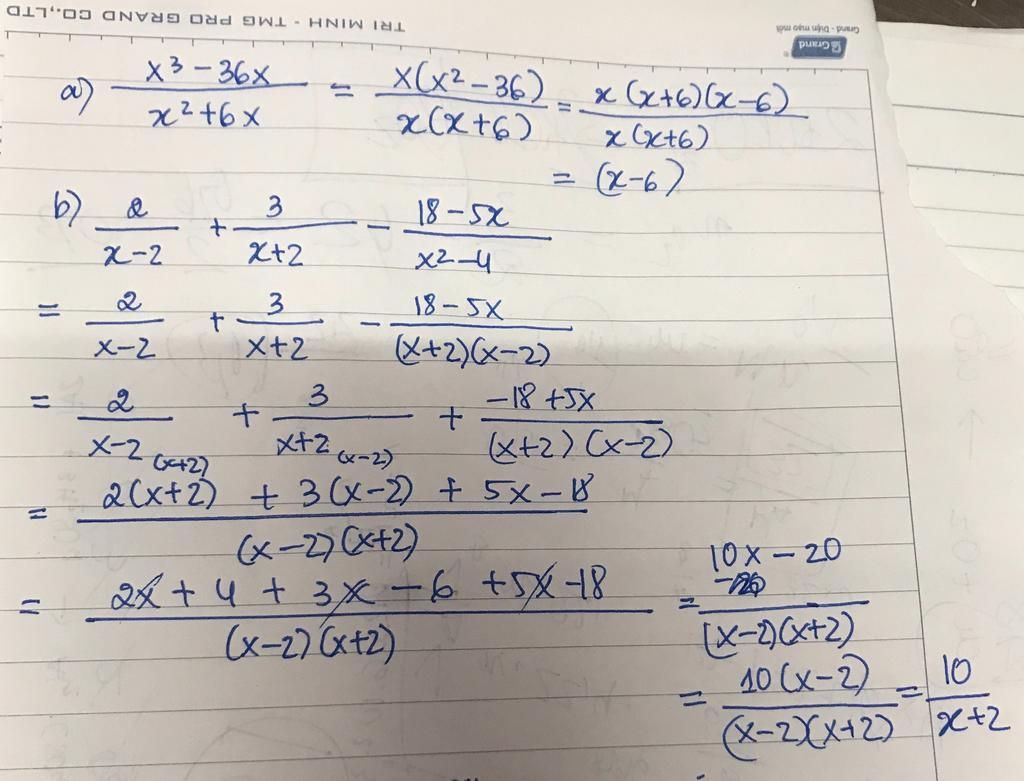 TRI MINH - TMG PRO GRAND CO.,LTD
Grand - Diện mạo mới
Grand
a) x³ - 36x / x² + 6x = x(x² - 36) / x(x + 6) = x(x+6)(x-6) / x(x+6)
= (x-6)
b) 2 / x-2 + 3 / x+2 - 18 - 5x / x² - 4
= 2 / x-2 + 3 / x+2 - 18 - 5x / (x+2)(x-2)
= 2 / x-2 (x+2) + 3 / x+2 (x-2) + -18 + 5x / (x+2)(x-2)
= 2(x+2) + 3(x-2) + 5x - 18 / (x-2)(x+2)
= 2x + 4 + 3x - 6 + 5x - 18 / (x-2)(x+2) = 10x - 20 / (x-2)(x+2)
= 10(x-2) / (x-2)(x+2) = 10 / x+2